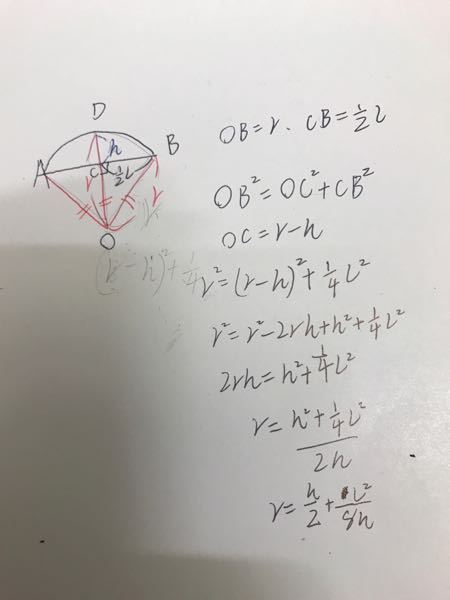 D
h
A
B
C
½l
r
r
O
OB=r、CB=½l
OB²=OC²+CB²
OC=r-h
r²=(r-h)²+¼l²
r²=r²-2rh+h²+¼l²
2rh=h²+¼l²
r=(h²+¼l²)/2h
r=h/2+l²/8h